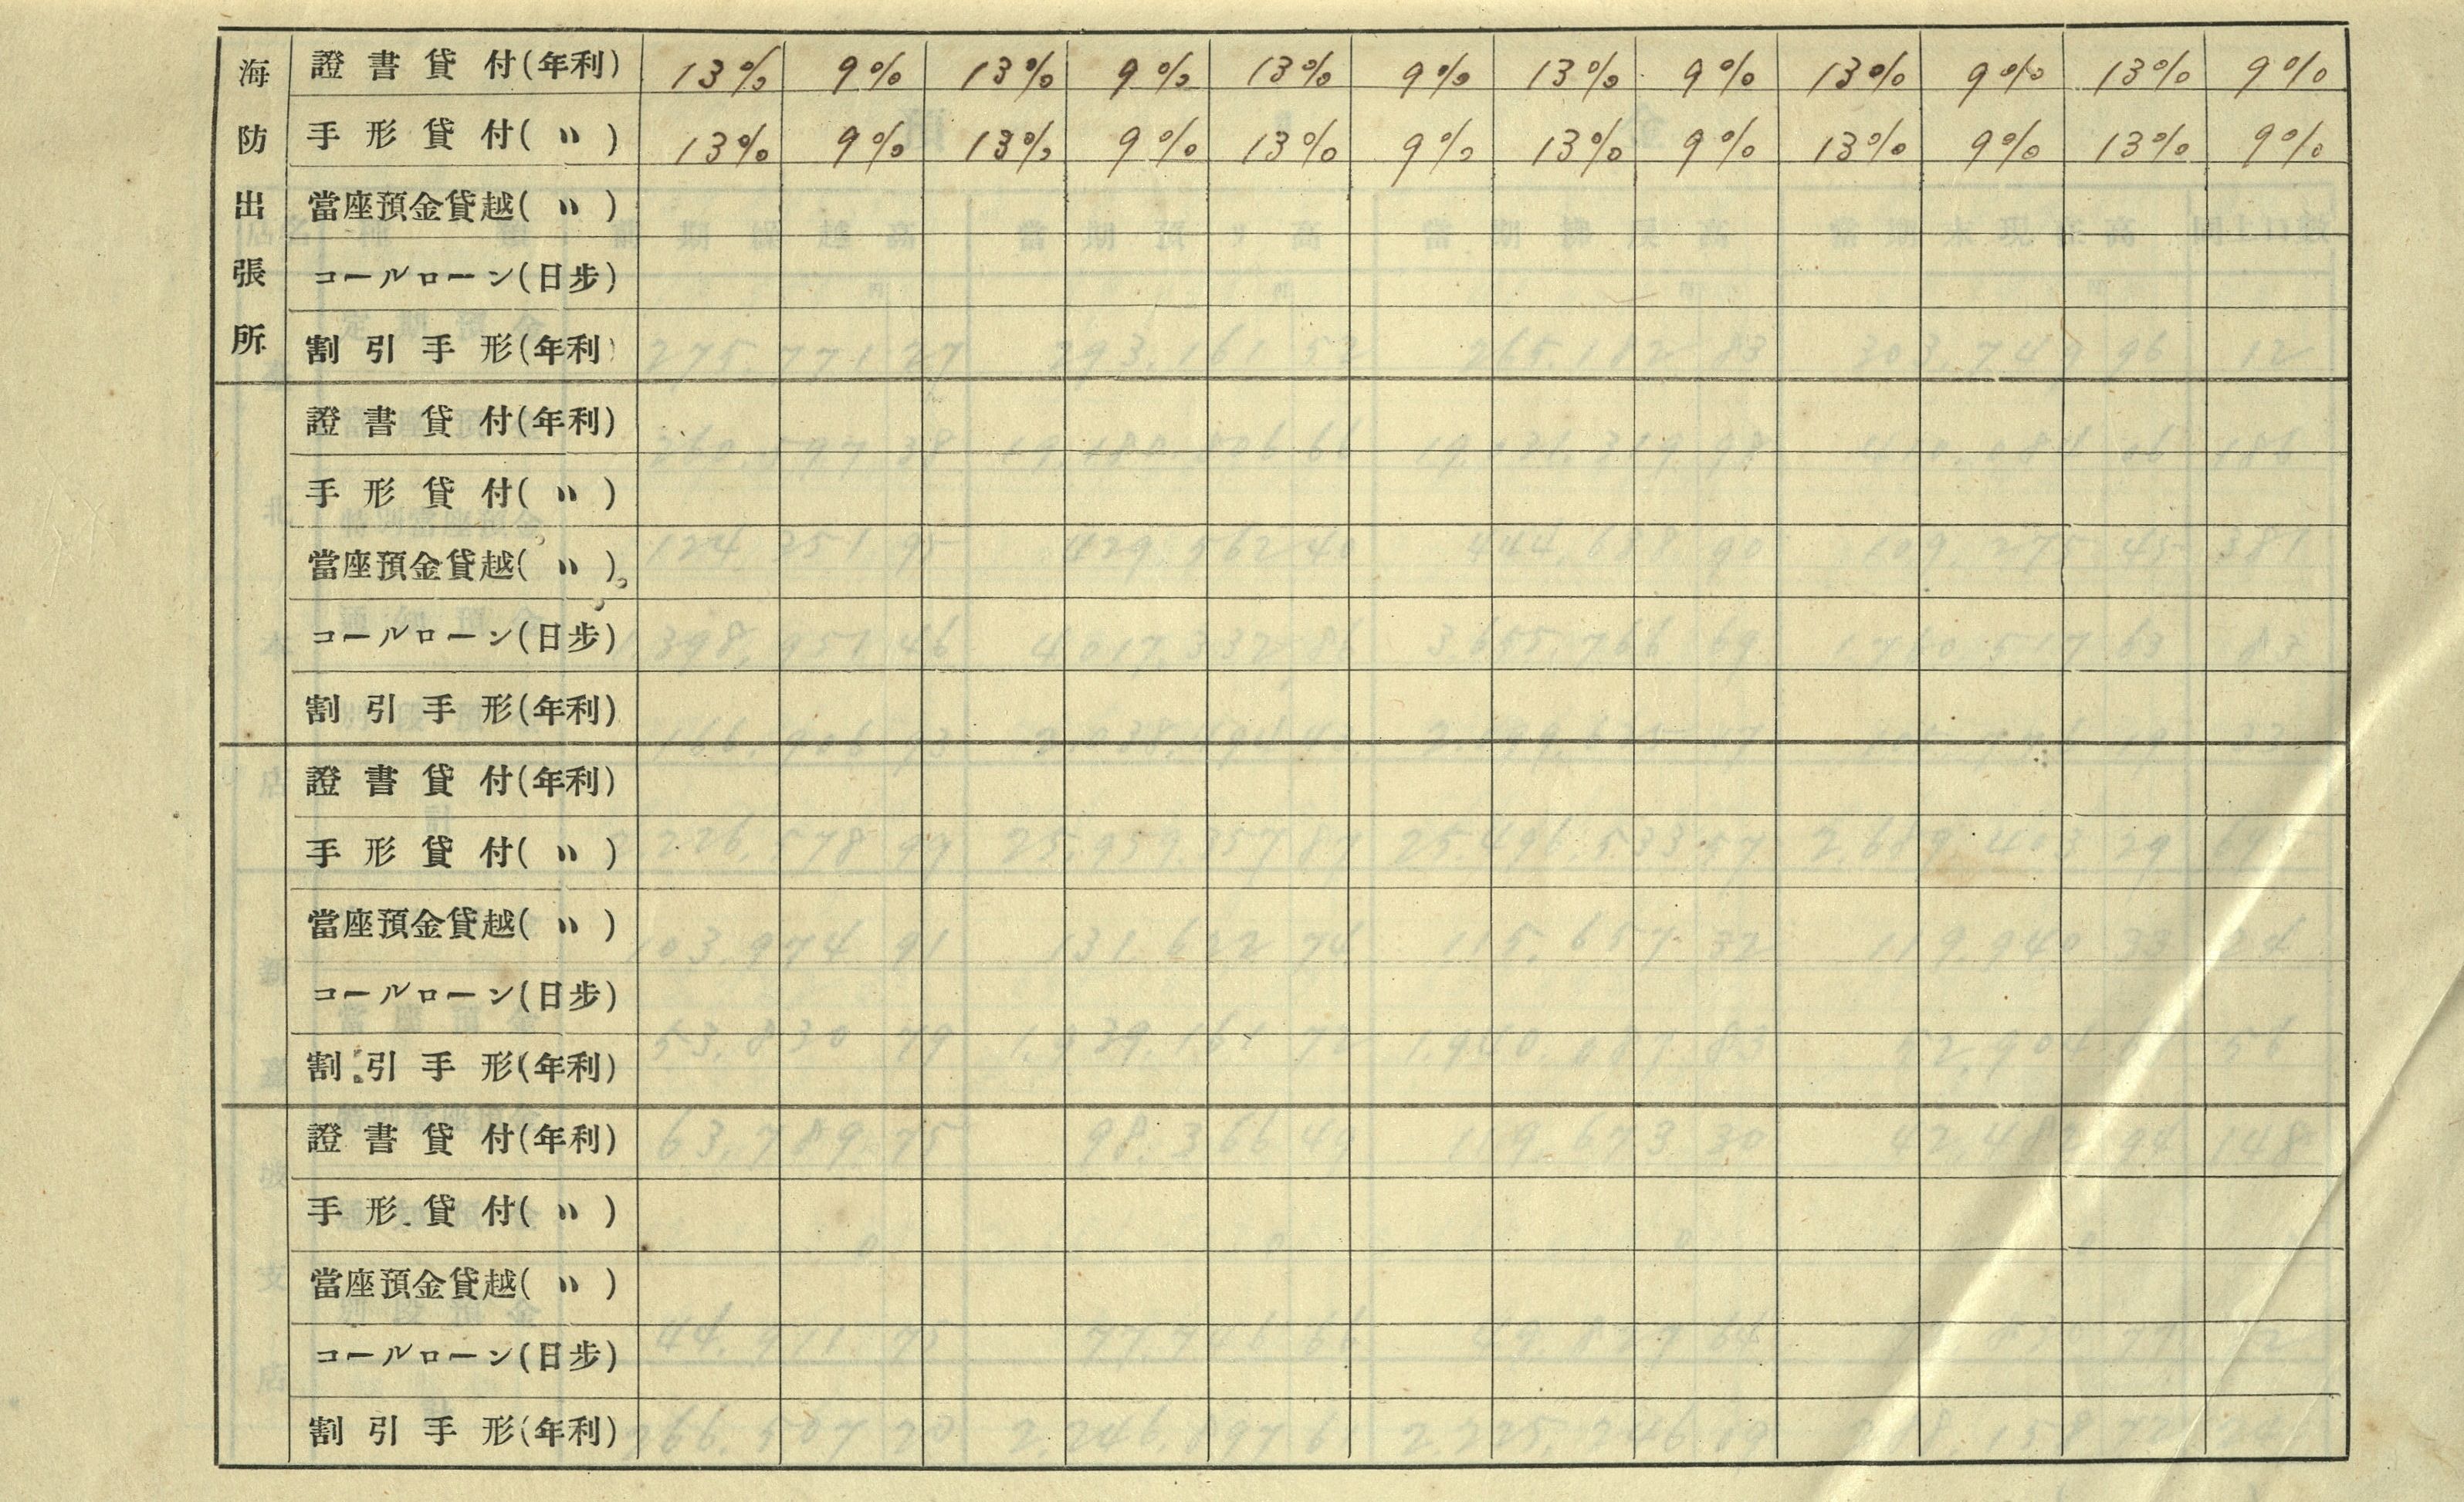 海防出張所
證書貸付(年利) 13% 9% 13% 9% 13% 9% 13% 9% 13% 9% 13% 9%
手形貸付( 〃 ) 13% 9% 13% 9% 13% 9% 13% 9% 13% 9% 13% 9%
當座預金貸越( 〃 )
コールローン(日步)
割引手形(年利)
證書貸付(年利)
手形貸付( 〃 )
當座預金貸越( 〃 )
コールローン(日步)
割引手形(年利)
證書貸付(年利)
手形貸付( 〃 )
當座預金貸越( 〃 )
コールローン(日步)
割引手形(年利)
證書貸付(年利)
手形貸付( 〃 )
當座預金貸越( 〃 )
コールローン(日步)
割引手形(年利)